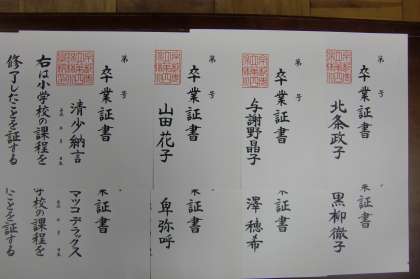 第 号
卒業証書
北条政子
第 号
卒業証書
与謝野晶子
第 号
卒業証書
山田花子
第 号
卒業証書
清少納言
右は小学校の課程を
修了したことを証する
証書
黒柳徹子
証書
澤穂希
業証書
卑弥呼
業証書
マツコデラックス
学校の課程を
ことを証する